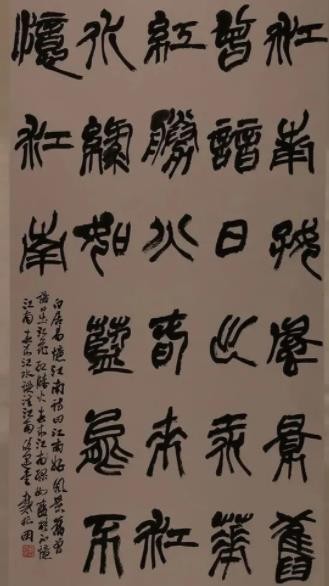 江南好風景舊
曾諳日出江花
紅勝火春來江
水綠如藍能不
憶江南
白居易憶江南詩曰江南好風景舊曾
諳日出江花紅勝火春來江南綠如藍能不憶
江南